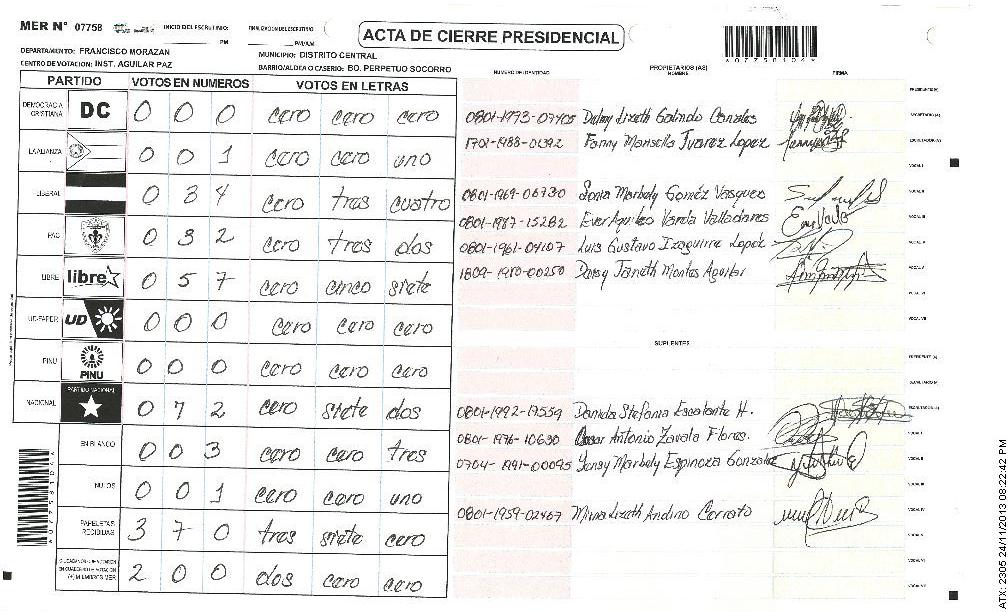 MER N° 07758 INICIO DEL ESCRUTINIO: PM FINALIZACION DEL ESCRUTINIO PM/AM
ACTA DE CIERRE PRESIDENCIAL
*07758106*
DEPARTAMENTO: FRANCISCO MORAZAN MUNICIPIO: DISTRITO CENTRAL
CENTRO DE VOTACION: INST. AGUILAR PAZ BARRIO/ALDEA O CASERIO: BO. PERPETUO SOCORRO
PARTIDO VOTOS EN NUMEROS VOTOS EN LETRAS
DEMOCRACIA CRISTIANA DC 0 0 0 cero cero cero
LA ALIANZA 0 0 1 cero cero uno
LIBERAL 0 3 4 cero tres cuatro
PAC 0 3 2 cero tres dos
LIBRE libre 0 5 7 cero cinco siete
UD-FAPER UD 0 0 0 cero cero cero
PINU PINU 0 0 0 cero cero cero
NACIONAL PARTIDO NACIONAL 0 7 2 cero siete dos
EN BLANCO 0 0 3 cero cero tres
NULOS 0 0 1 cero cero uno
PAPELETAS RECIBIDAS 3 7 0 tres siete cero
CIUDADANOS QUE VOTARON EN CUADERNO DE VOTACION (+) MIEMBROS MER 2 0 0 dos cero cero
NUMERO DE IDENTIDAD PROPIETARIOS (AS) NOMBRE FIRMA
PRESIDENTE (A)
0801-1973-07405 Lizeth Galindo SECRETARIO (A)
1701-1988-01392 Fanny Marisella Juarez Lopez ESCRUTADOR (A)
VOCAL I
0801-1969-06730 Sonia Marbely Goméz Vasquez VOCAL II
0801-1987-15282 Ever Valladares VOCAL III
0801-1961-04107 Luis Gustavo Izaguirre Lopez VOCAL IV
1809-1980-00250 Daisy Janeth Montes Aguilar VOCAL V
VOCAL VI
VOCAL VII
SUPLENTES
PRESIDENTE (A)
SECRETARIO (A)
0801-1992-17559 Daniela Stefania Escalante H. ESCRUTADOR (A)
0801-1976-10630 Antonio Zavala Flores. VOCAL I
0704-1991-00095 Yensy Marbely Espinoza Gonzalez VOCAL II
0801-1959-02467 Mirna Lizeth Andino Cerrato VOCAL IV
VOCAL V
VOCAL VI
VOCAL VII
ATX: 2305 24/11/2013 08:22:42 PM